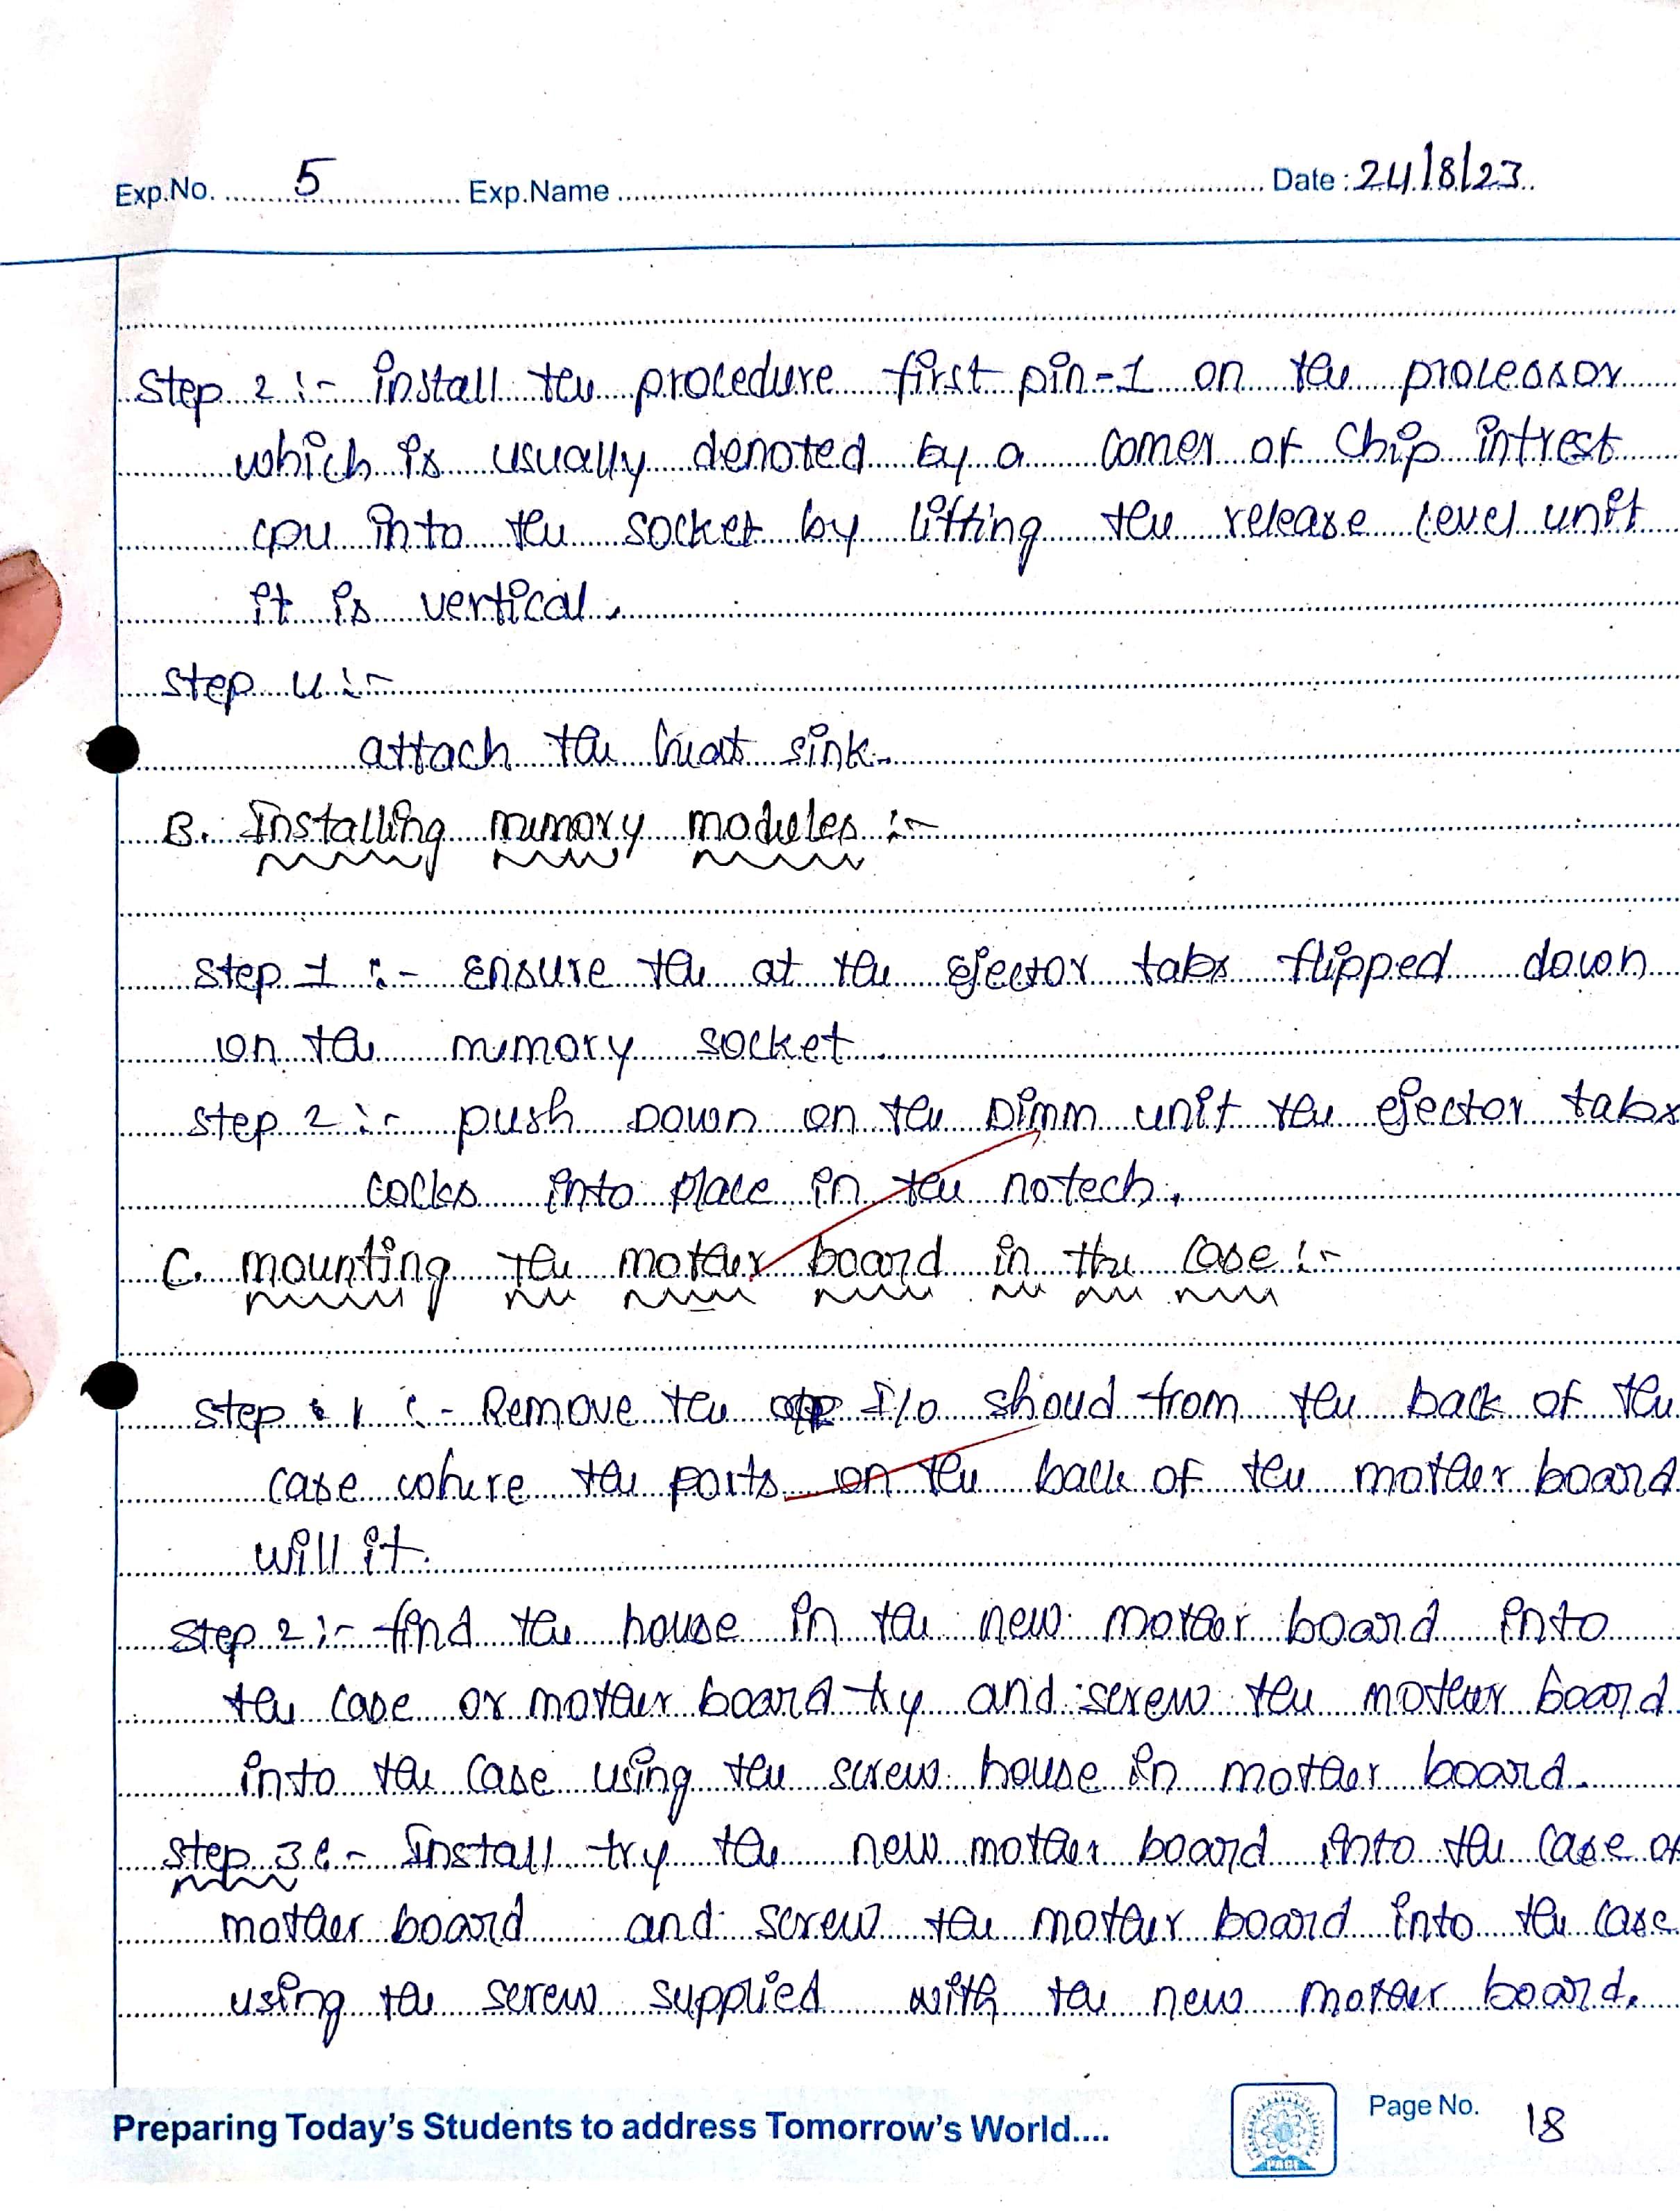 Exp.No. 5 Exp.Name Date : 24/8/23
Step 2 :- install the procedure first pin-1 on the processor
which is usually denoted by a corner of chip intrest
cpu into the socket by lifting the release level unit
it is vertical.
Step 4 :-
attach the heat sink.
B. Installing memory modules :-
Step 1 :- Ensure the at the ejector tabs flipped down
on the memory socket
Step 2 :- push Down on the Dimm unit the ejector tabs
cocks into place in the notech.
C. mounting the mother board in the case :-
Step 1 :- Remove the I/o shoud from the back of the
case where the ports on the back of the mother board
will it.
Step 2 :- find the house in the new mother board into
the case or mother board try and screw the mother board
into the case using the screw house in mother board.
Step 3 :- Install try the new mother board into the case of
mother board and screw the mother board into the case
using the screw supplied with the new mother board.
Preparing Today's Students to address Tomorrow's World....
Page No. 18